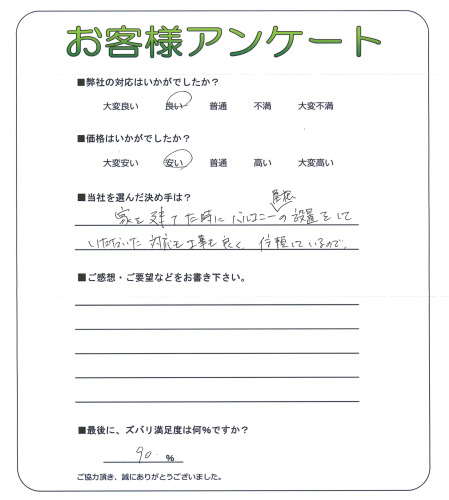 お客様アンケート
■弊社の対応はいかがでしたか？
大変良い 良い 普通 不満 大変不満
■価格はいかがでしたか？
大変安い 安い 普通 高い 大変高い
■当社を選んだ決め手は？
屋根
家を建てた時にバルコニーの設置をして
いただいた 対応も工事も良く、信頼しているので。
■ご感想・ご要望などをお書き下さい。
■最後に、ズバリ満足度は何％ですか？
90 %
ご協力頂き、誠にありがとうございました。